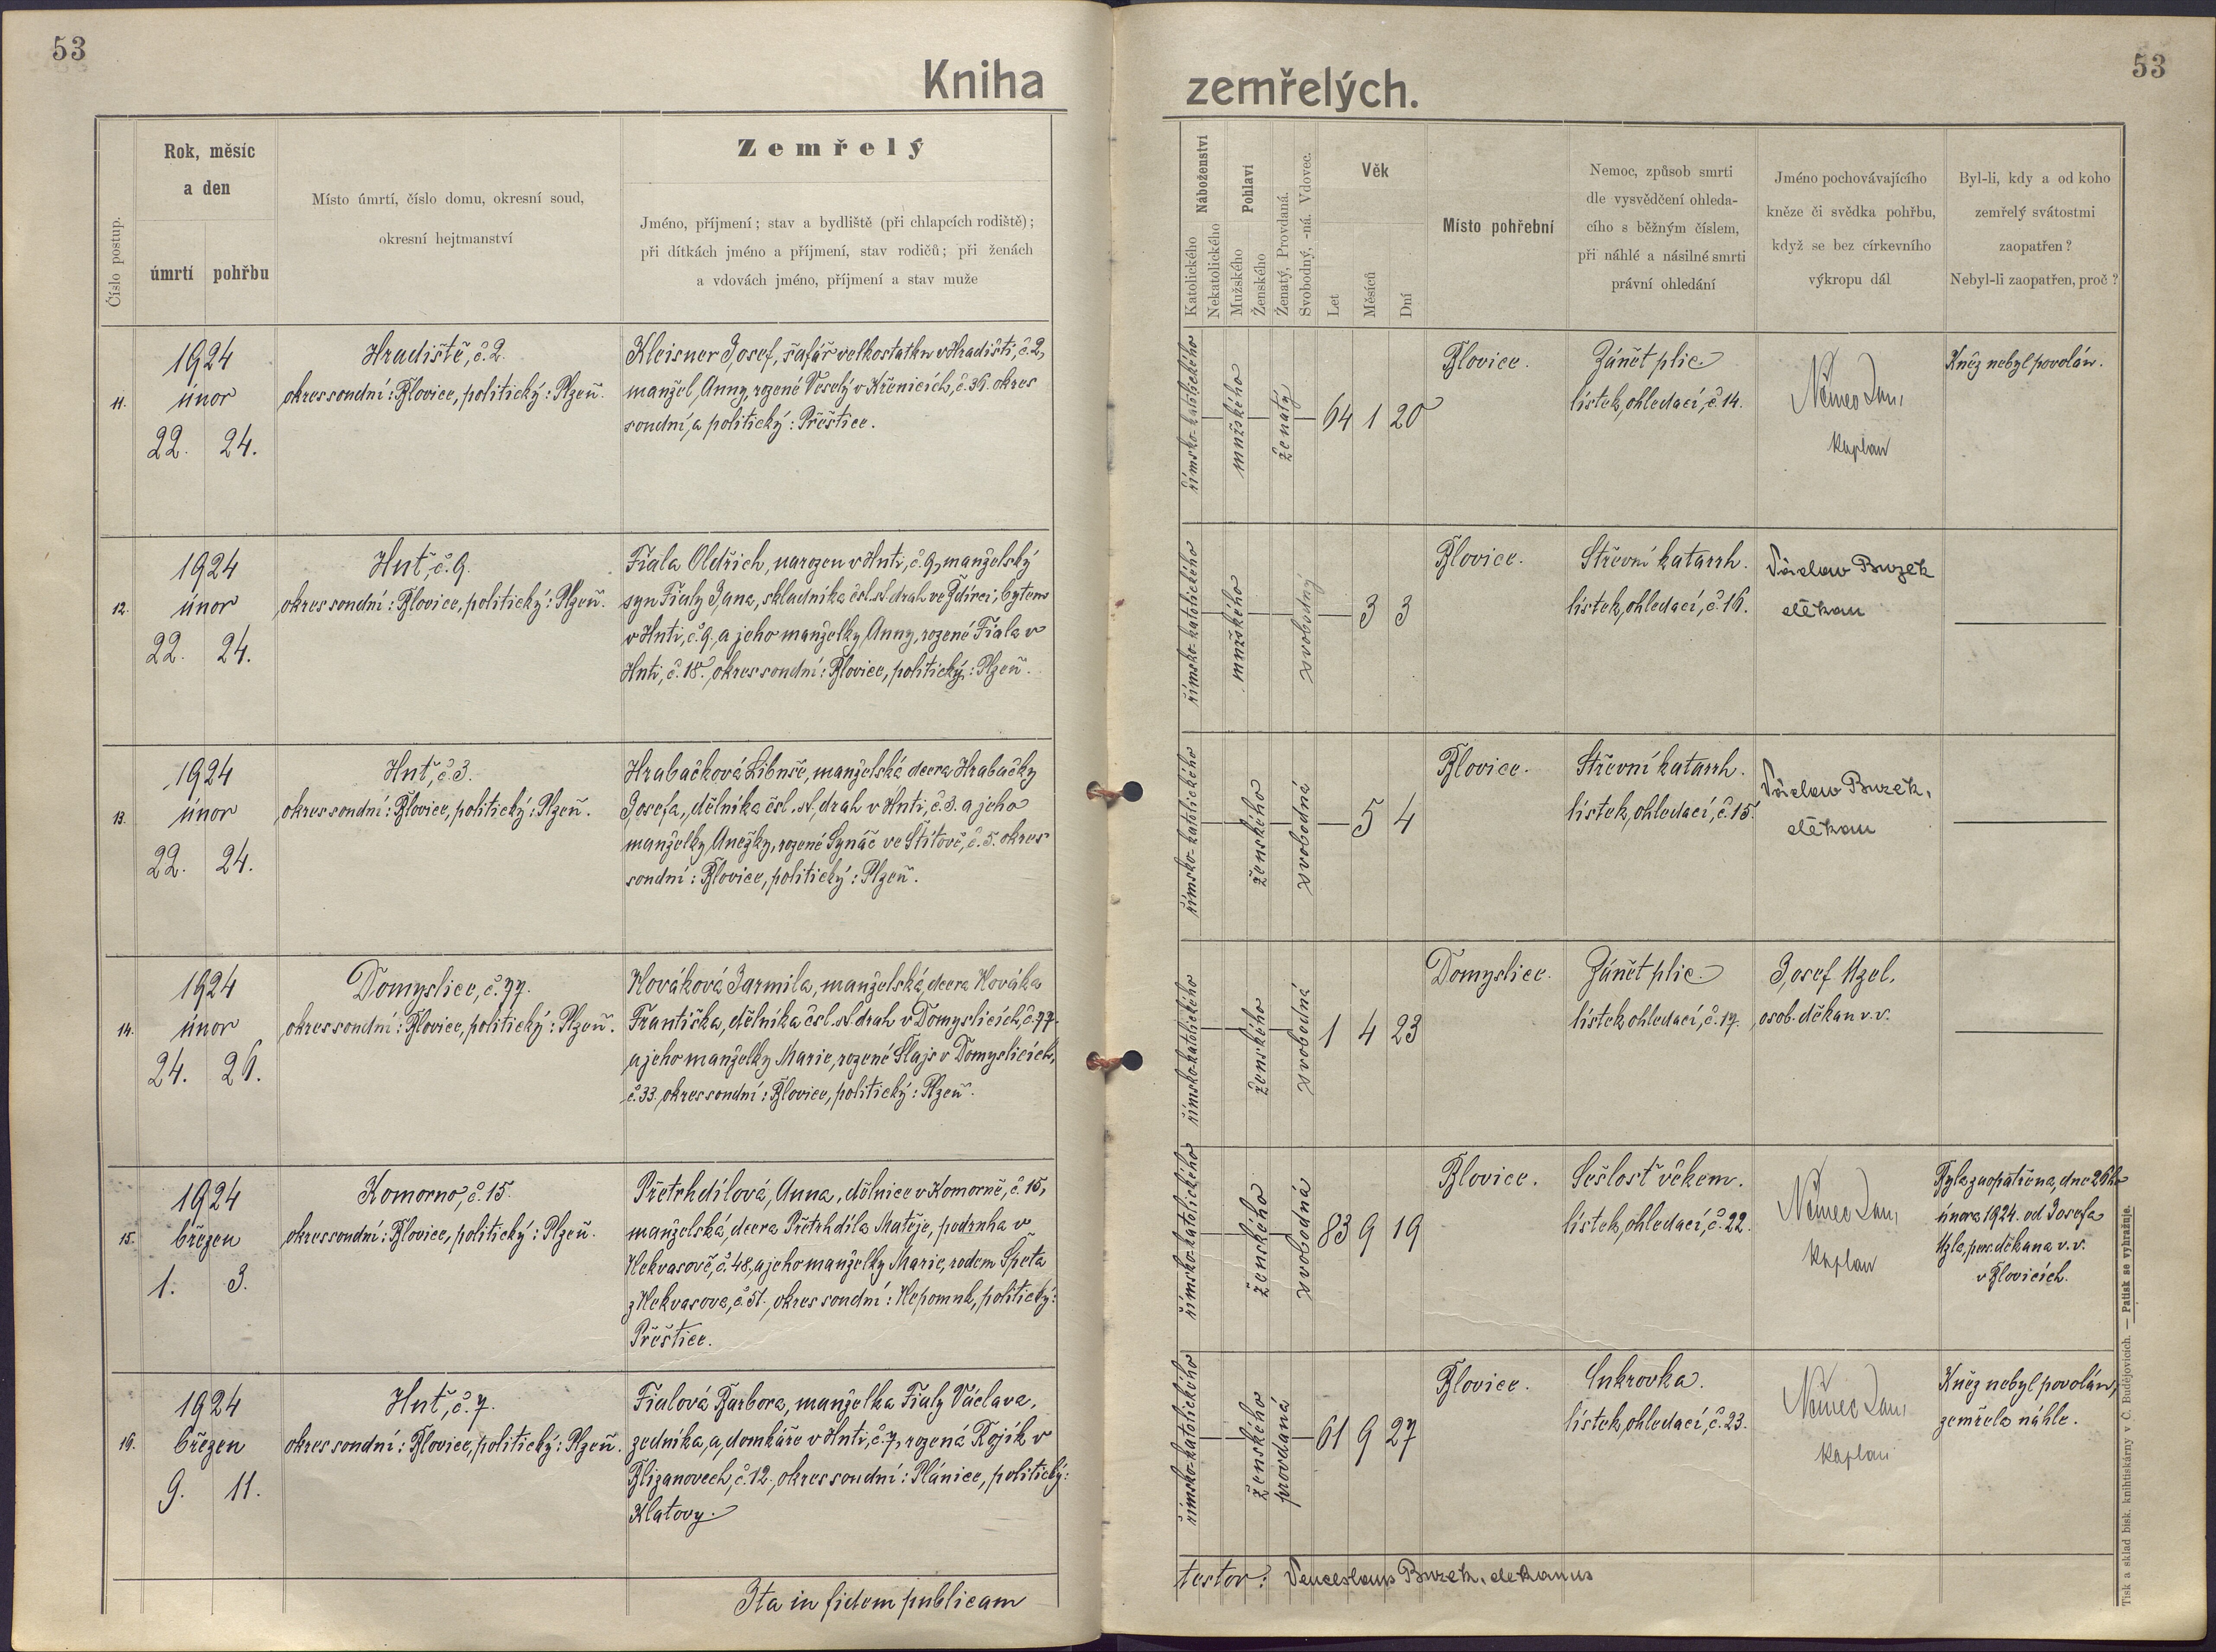 53
Kniha
Číslo postup.
Rok, měsíc
a den
úmrtí
pohřbu
Místo úmrtí, číslo domu, okresní soud,
okresní hejtmanství
Zemřelý
Jméno, příjmení; stav a bydliště (při chlapcích rodiště);
při dítkách jméno a příjmení, stav rodičů; při ženách
a vdovách jméno, příjmení a stav muže
11.
1924
únor
22. 24.
Hradiště, č. 2.
okres soudní: Blovice, politický: Plzeň.
Kleisner Josef, šafář velkostatku v Hradišti, č. 2,
manžel Anny, rozené Veselý v Křenicích, č. 36. okres
soudní, a politický: Přeštice.
12.
1924
únor
22. 24.
Huť, č. 9.
okres soudní: Blovice, politický: Plzeň.
Fiala Oldřich, narozen v Huti, č. 9, manželský
syn Fialy Jana, skladníka čsl. st. drah ve Ždírci, bytem
v Huti, č. 9. a jeho manželky Anny, rozené Fiala v
Huti, č. 18. okres soudní: Blovice, politický: Plzeň.
13.
1924
únor
22. 24.
Huť, č. 3.
okres soudní: Blovice, politický: Plzeň.
Hrabačková Libuše, manželská dcera Hrabačky
Josefa, dělníka čsl. st. drah v Huti, č. 3. a jeho
manželky Anežky, rozené Synáč ve Štítově, č. 5. okres
soudní: Blovice, politický: Plzeň.
14.
1924
únor
24. 26.
Domyslice, č. 77.
okres soudní: Blovice, politický: Plzeň.
Nováková Jarmila, manželská dcera Nováka
Františka, dělníka čsl. st. drah v Domyslicích, č. 77.
a jeho manželky Marie, rozené Šlajs v Domyslicích,
č. 33. okres soudní: Blovice, politický: Plzeň.
15.
1924
březen
1. 3.
Komorno, č. 15.
okres soudní: Blovice, politický: Plzeň.
Přetrhdílová, Anna, dělnice v Komorně, č. 15,
manželská, dcera Přetrhdíla Matěje, podruha v
Nekvasově, č. 48, a jeho manželky Marie, rodem Špeta
z Nekvasova, č. 51., okres soudní: Nepomuk, politický:
Přeštice.
16.
1924
březen
9. 11.
Huť, č. 7.
okres soudní: Blovice, politický: Plzeň.
Fialová Barbora, manželka Fialy Václava,
zedníka, a domkáře v Huti, č. 7, rozená Rojík v
Blizanovech, č. 12., okres soudní: Plánice, politický:
Klatovy.
Ita in fidem publicam
53
zemřelých.
Náboženství
Katolického
Nekatolického
Pohlaví
Mužského
Ženského
Ženatý, Provdaná.
Svobodný, -ná. Vdovec.
Věk
Let
Měsíců
Dní
Místo pohřební
Nemoc, způsob smrti
dle vysvědčení ohleda-
cího s běžným číslem,
při náhlé a násilné smrti
právní ohledání
Jméno pochovávajícího
kněze či svědka pohřbu,
když se bez církevního
výkropu dál
Byl-li, kdy a od koho
zemřelý svátostmi
zaopatřen?
Nebyl-li zaopatřen, proč?
římsko-katolického
mužského
ženatý
64 1 20
Blovice.
Zánět plic
lístek, ohledací, č. 14.
Němec Jan,
kaplan
Kněz nebyl povolán.
římsko-katolického
mužského
svobodný
3 3
Blovice.
Střevní katarrh.
lístek, ohledací, č. 16.
Václav Buzek
děkan
římsko-katolického
ženského
svobodná
5 4
Blovice.
Střevní katarrh.
lístek, ohledací, č. 15.
Václav Buzek,
děkan
římsko-katolického
ženského
svobodná
1 4 23
Domyslice.
Zánět plic
lístek ohledací, č. 17.
Josef Uzel,
osob. děkan v. v.
římsko-katolického
ženského
svobodná
83 9 19
Blovice.
Sešlosť věkem.
lístek, ohledací, č. 22.
Němec Jan,
kaplan
Byla zaopatřena, dne 26ho
února 1924. od Josefa
Uzla, pos. děkana v. v.
v Blovicích.
římsko-katolického
ženského
provdaná
61 9 27
Blovice.
Cukrovka.
lístek, ohledací, č. 23.
Němec Jan,
kaplan
Kněz nebyl povolán,
zemřela náhle.
testor: Venceslaus Buzek, dekanus
Tisk a sklad bisk. knihtiskárny v Č. Budějovicích. — Patisk se vyhražuje.